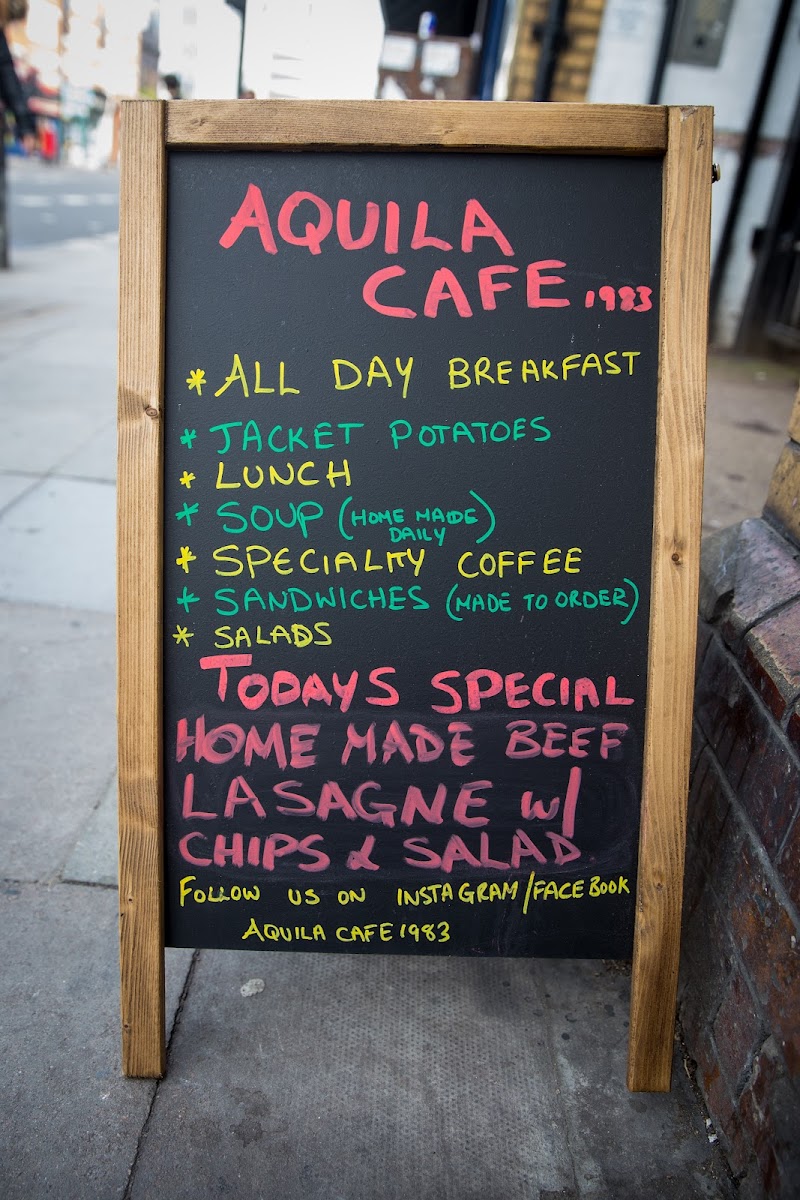 AQUILA
CAFE. 1983
* ALL DAY BREAKFAST
* JACKET POTATOES
* LUNCH
* SOUP (HOME MADE
DAILY)
* SPECIALITY COFFEE
* SANDWICHES (MADE TO ORDER)
* SALADS
TODAYS SPECIAL
HOME MADE BEEF
LASAGNE w/
CHIPS & SALAD.
FOLLOW US ON INSTAGRAM/FACEBOOK
AQUILA CAFE 1983